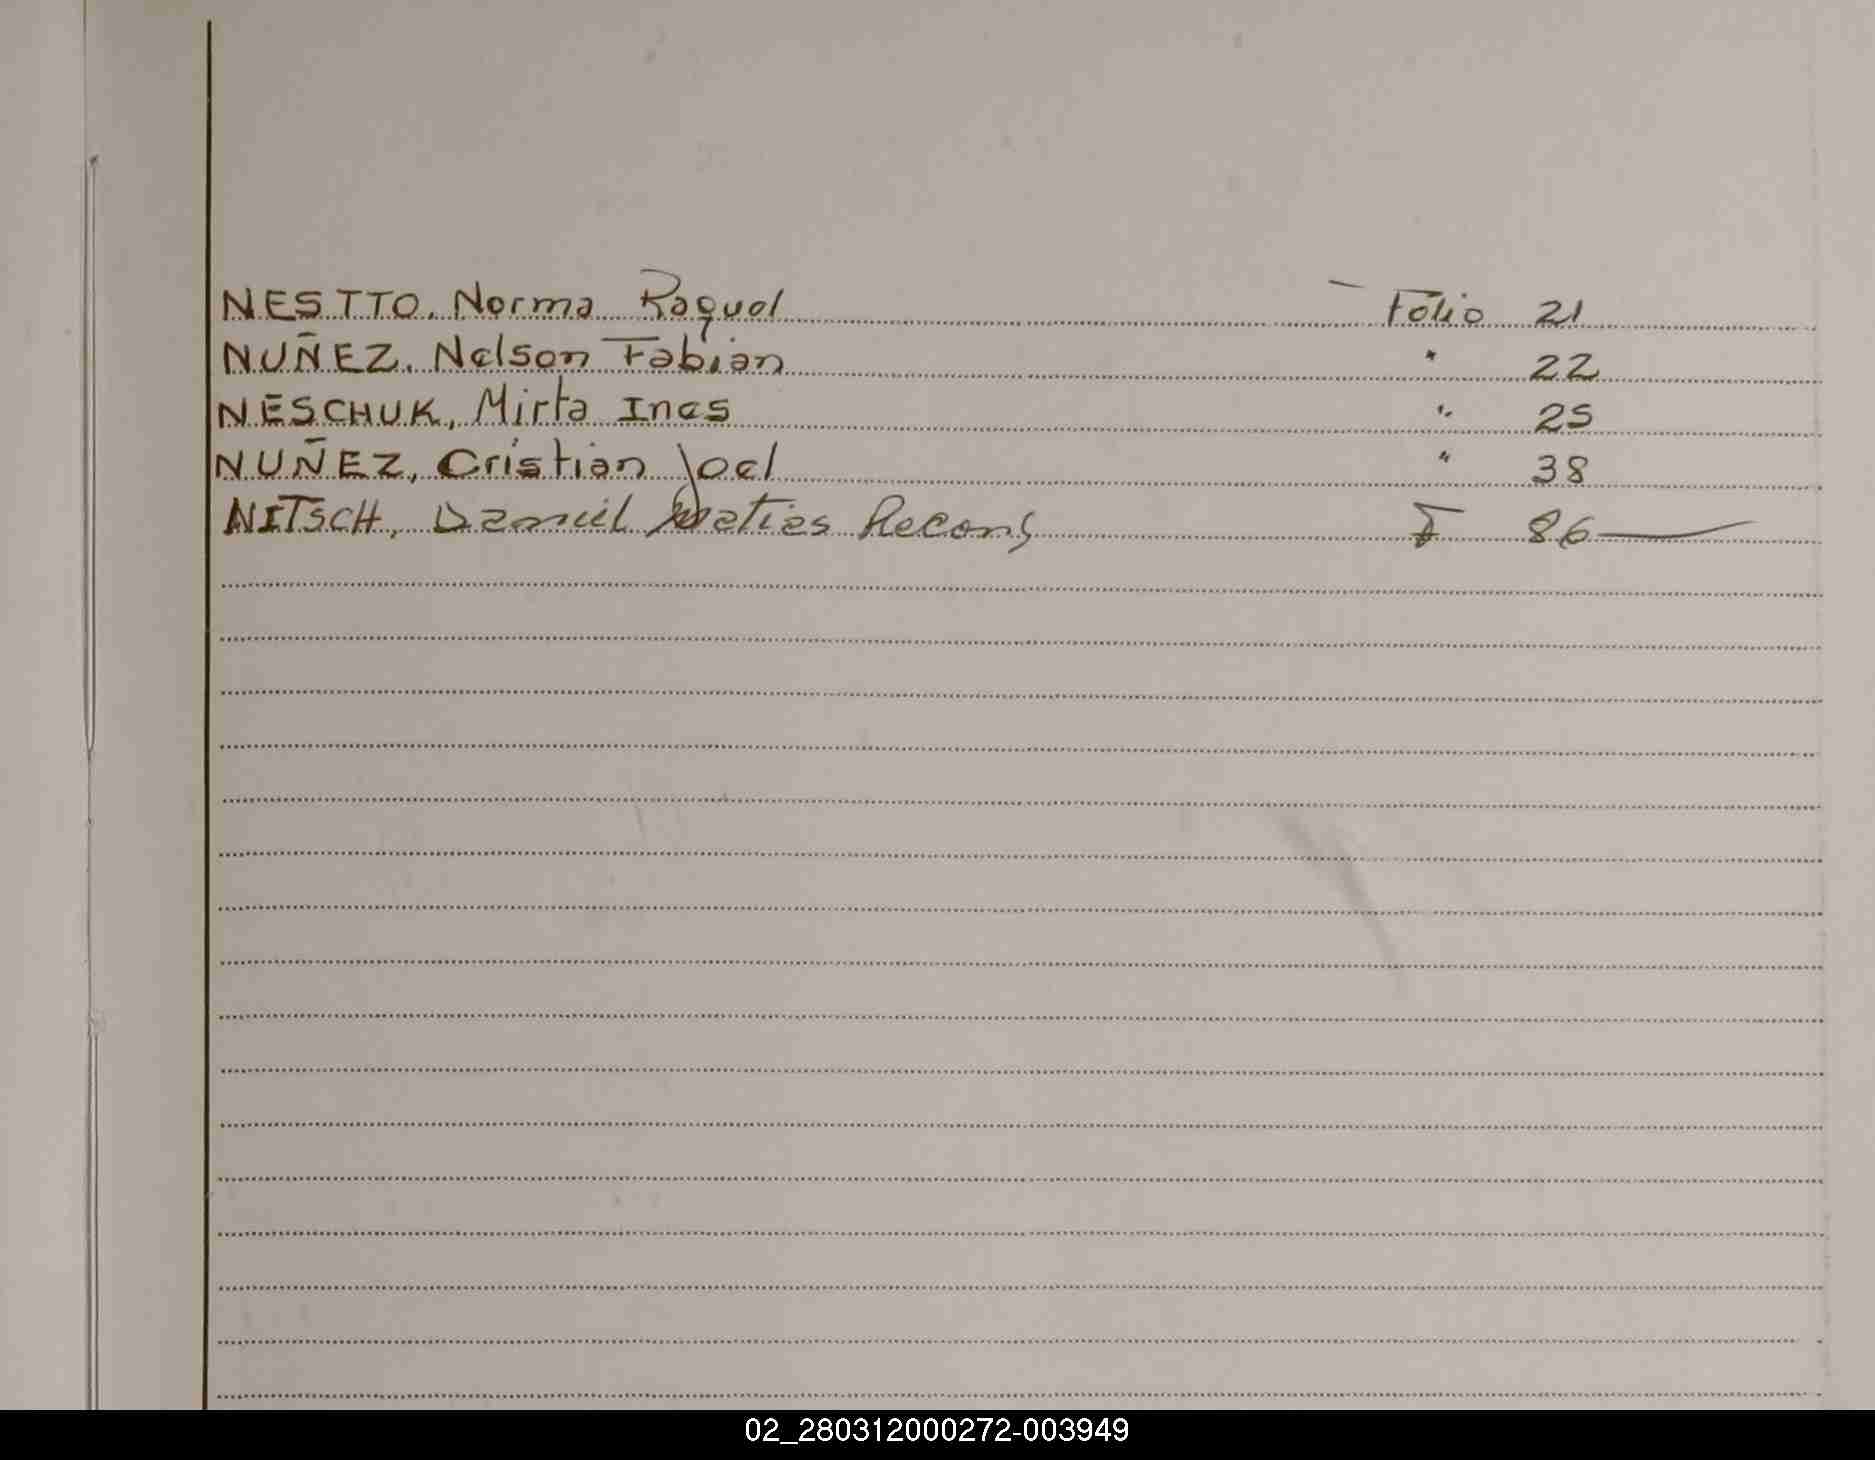 NESTTO, Norma Raquel Folio 21
NUÑEZ, Nelson Fabian " 22
NESCHUK, Mirta Ines " 25
NUÑEZ, Cristian Joel " 38
NITSCH, Daniel Matias Recons F 86
02_280312000272-003949